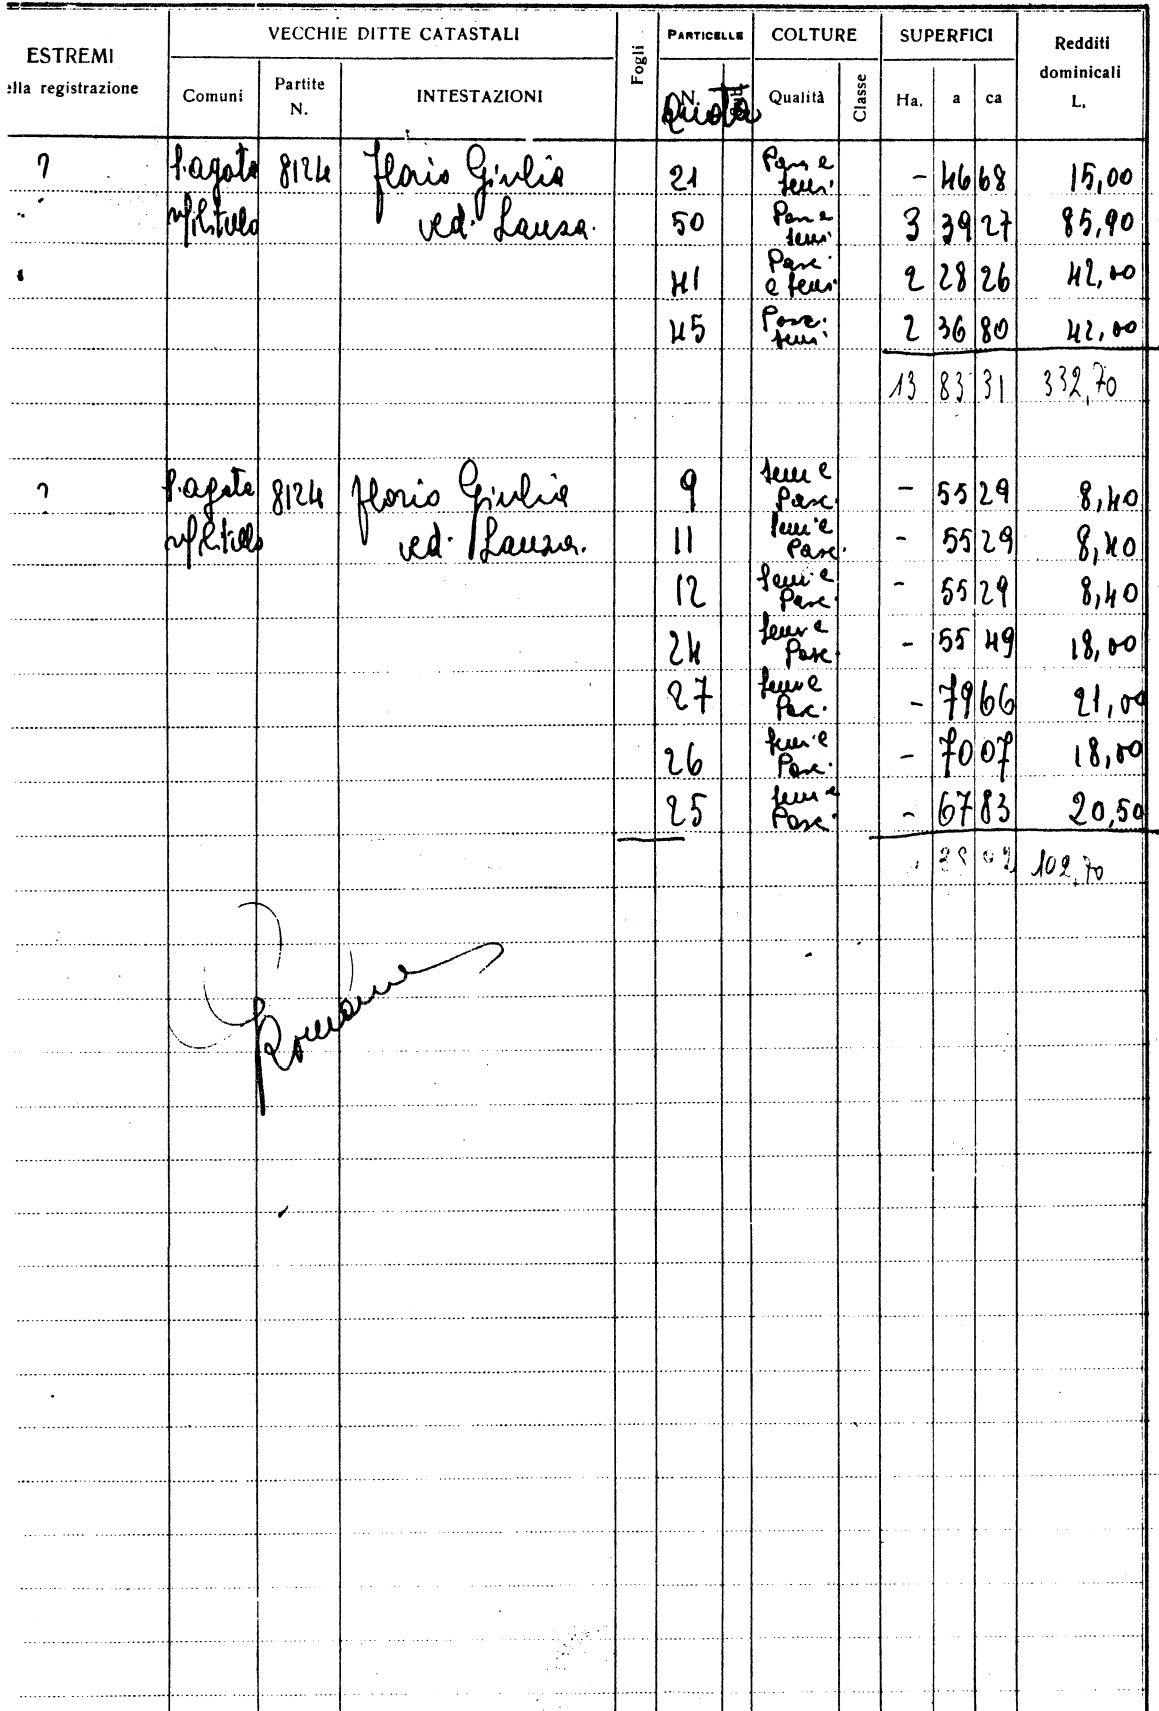 ESTREMI
ella registrazione
VECCHIE DITTE CATASTALI
Comuni Partite N. INTESTAZIONI
Fogli
PARTICELLE
N.
Quota
COLTURE
Qualità Classe
SUPERFICI
Ha. a ca
Redditi dominicali L.
? S. agata 8124 Florio Giulia 21 Pasc e semi. - 46 68 15,00
Militello ved. Lanza. 50 Pasc e semi 3 39 27 85,90
41 Pasc. e semi 2 28 26 42,00
45 Pasc. semi. 2 36 80 42,00
13 83 31 332,70
? S. agata 8124 Florio Giulia 9 sem e Pasc. - 55 29 8,40
Militello ved. Lanza. 11 sem e Pasc. - 55 29 8,40
12 sem e Pasc. - 55 29 8,40
24 sem e Pasc. - 55 49 18,00
27 sem e Pasc. - 79 66 21,00
26 sem e Pasc. - 70 07 18,00
25 sem e Pasc. - 67 83 20,50
102,70